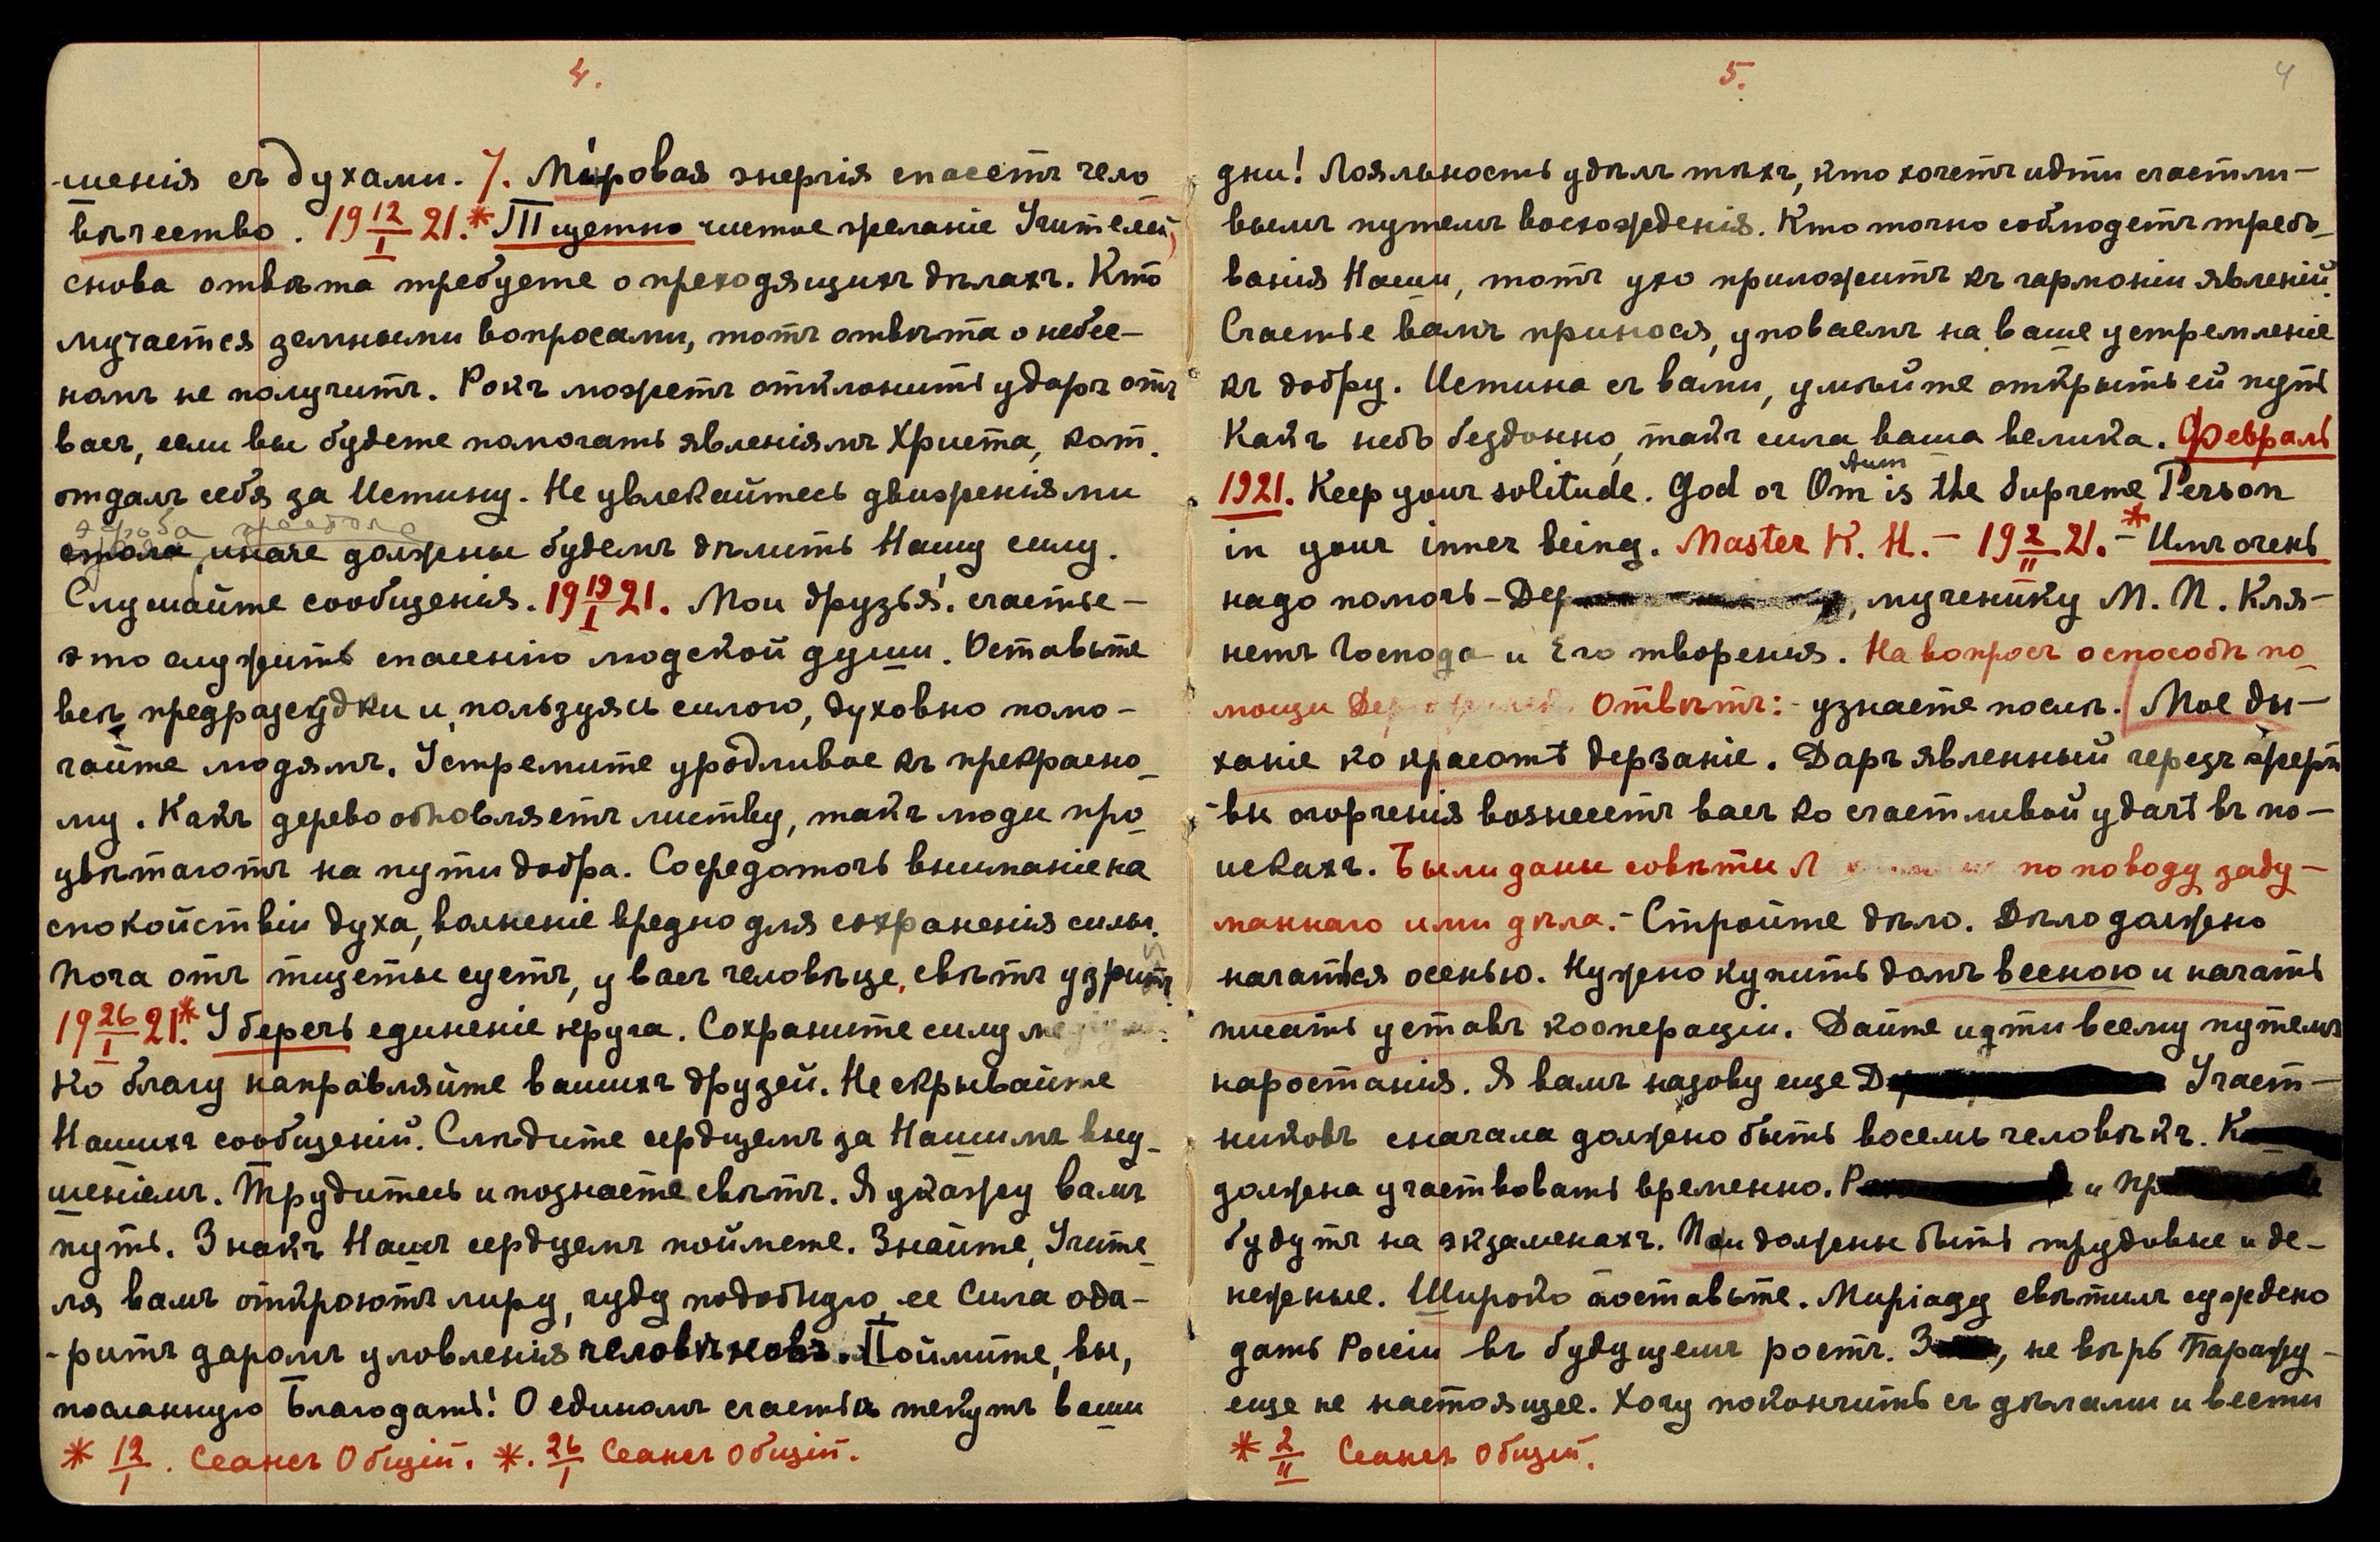 4.
-шенія съ духами. 7. Міровая энергія спасетъ чело
вѣчество. 19 12/I 21.* Тщетно чистое желаніе Учителей,
снова отвѣта требуете о преходящихъ дѣлахъ. Кто
мучается земными вопросами, тотъ отвѣта о небес-
номъ не получитъ. Рокъ можетъ отклонить ударъ отъ
васъ, если вы будете помогать явленіямъ Христа, кот.
отдалъ себя за Истину. Не увлекайтесь движеніями
стола, иначе должны будемъ дѣлить Нашу силу.
Слушайте сообщенія. 19 19/I 21. Мои друзья! счастье –
это служить спасенію людской души. Оставьте
всѣ предразсудки и, пользуясь силою, духовно помо-
гайте людямъ. Устремите уродливое къ прекрасно-
му. Какъ дерево обновляетъ листву, такъ люди про-
цвѣтаютъ на пути добра. Сосредоточь вниманіе на
спокойствіи духа, волненіе вредно для сохраненія силы.
Нога отъ тщеты суетъ, у васъ человѣце, свѣтъ узритъ
19 26/I 21.* Уберечь единеніе круга. Сохраните силу
Ко благу направляйте вашихъ друзей. Не скрывайте
Нашихъ сообщеній. Слѣдите сердцемъ за Нашимъ вну-
шеніемъ. Трудитесь и познаете свѣтъ. Я укажу вамъ
путь. Знакъ Нашъ сердцемъ поймете. Знайте, Учите-
ля вамъ откроютъ лиру, чуду подобную, ее Сила ода-
-ритъ даромъ уловленія человѣковъ. Поймите, вы,
посланную Благодать! О единомъ счастьѣ текутъ ваши
* 12/I. Сеансъ Общій. *. 26/I Сеансъ Общій.
5.
4
дни! Лояльность удѣлъ тѣхъ, кто хочетъ идти счастли-
вымъ путемъ восхожденія. Кто точно соблюдетъ требо-
ванія Наши, тотъ ухо приложитъ къ гармоніи явленій.
Счастье вамъ принося, уповаемъ на ваше устремленіе
къ добру. Истина съ вами, умѣйте открыть ей путь
Какъ небо бездонно, такъ сила ваша велика. Февраль
1921. Keep your solitude. God or Om Aum is the Supreme Person
in your inner being. Master K. H. – 19 2/II 21.* – Имъ очень
надо помочь – Дер , мученику М. П. Кля-
нетъ Господа и Его творенія. На вопросъ о способѣ по-
мощи Дер Отвѣтъ: – узнаете послѣ. Мое ды-
ханіе ко красотѣ дерзаніе. Даръ явленный черезъ жерт-
-вы огорченія вознесетъ васъ ко счастливой удачѣ въ по-
искахъ. Были даны совѣты Л по поводу заду-
маннаго ими дѣла. – Стройте дѣло. Дѣло должно
начаться осенью. Нужно купить домъ весною и начать
писать уставъ коопераціи. Дайте идти всему путемъ
наростанія. Я вамъ назову еще Д Участ-
никовъ сначала должно быть восемь человѣкъ. К
должна участвовать временно. Р и Пр
будутъ на экзаменахъ. Паи должны быть трудовые и де-
нежные. Широко поставьте. Миріаду свѣтилъ суждено
дать Россіи въ будущемъ ростъ. З , не вѣрь Парижу –
еще не настоящее. Хочу покончить съ дѣлами и вести
* 2/II Сеансъ Общій.